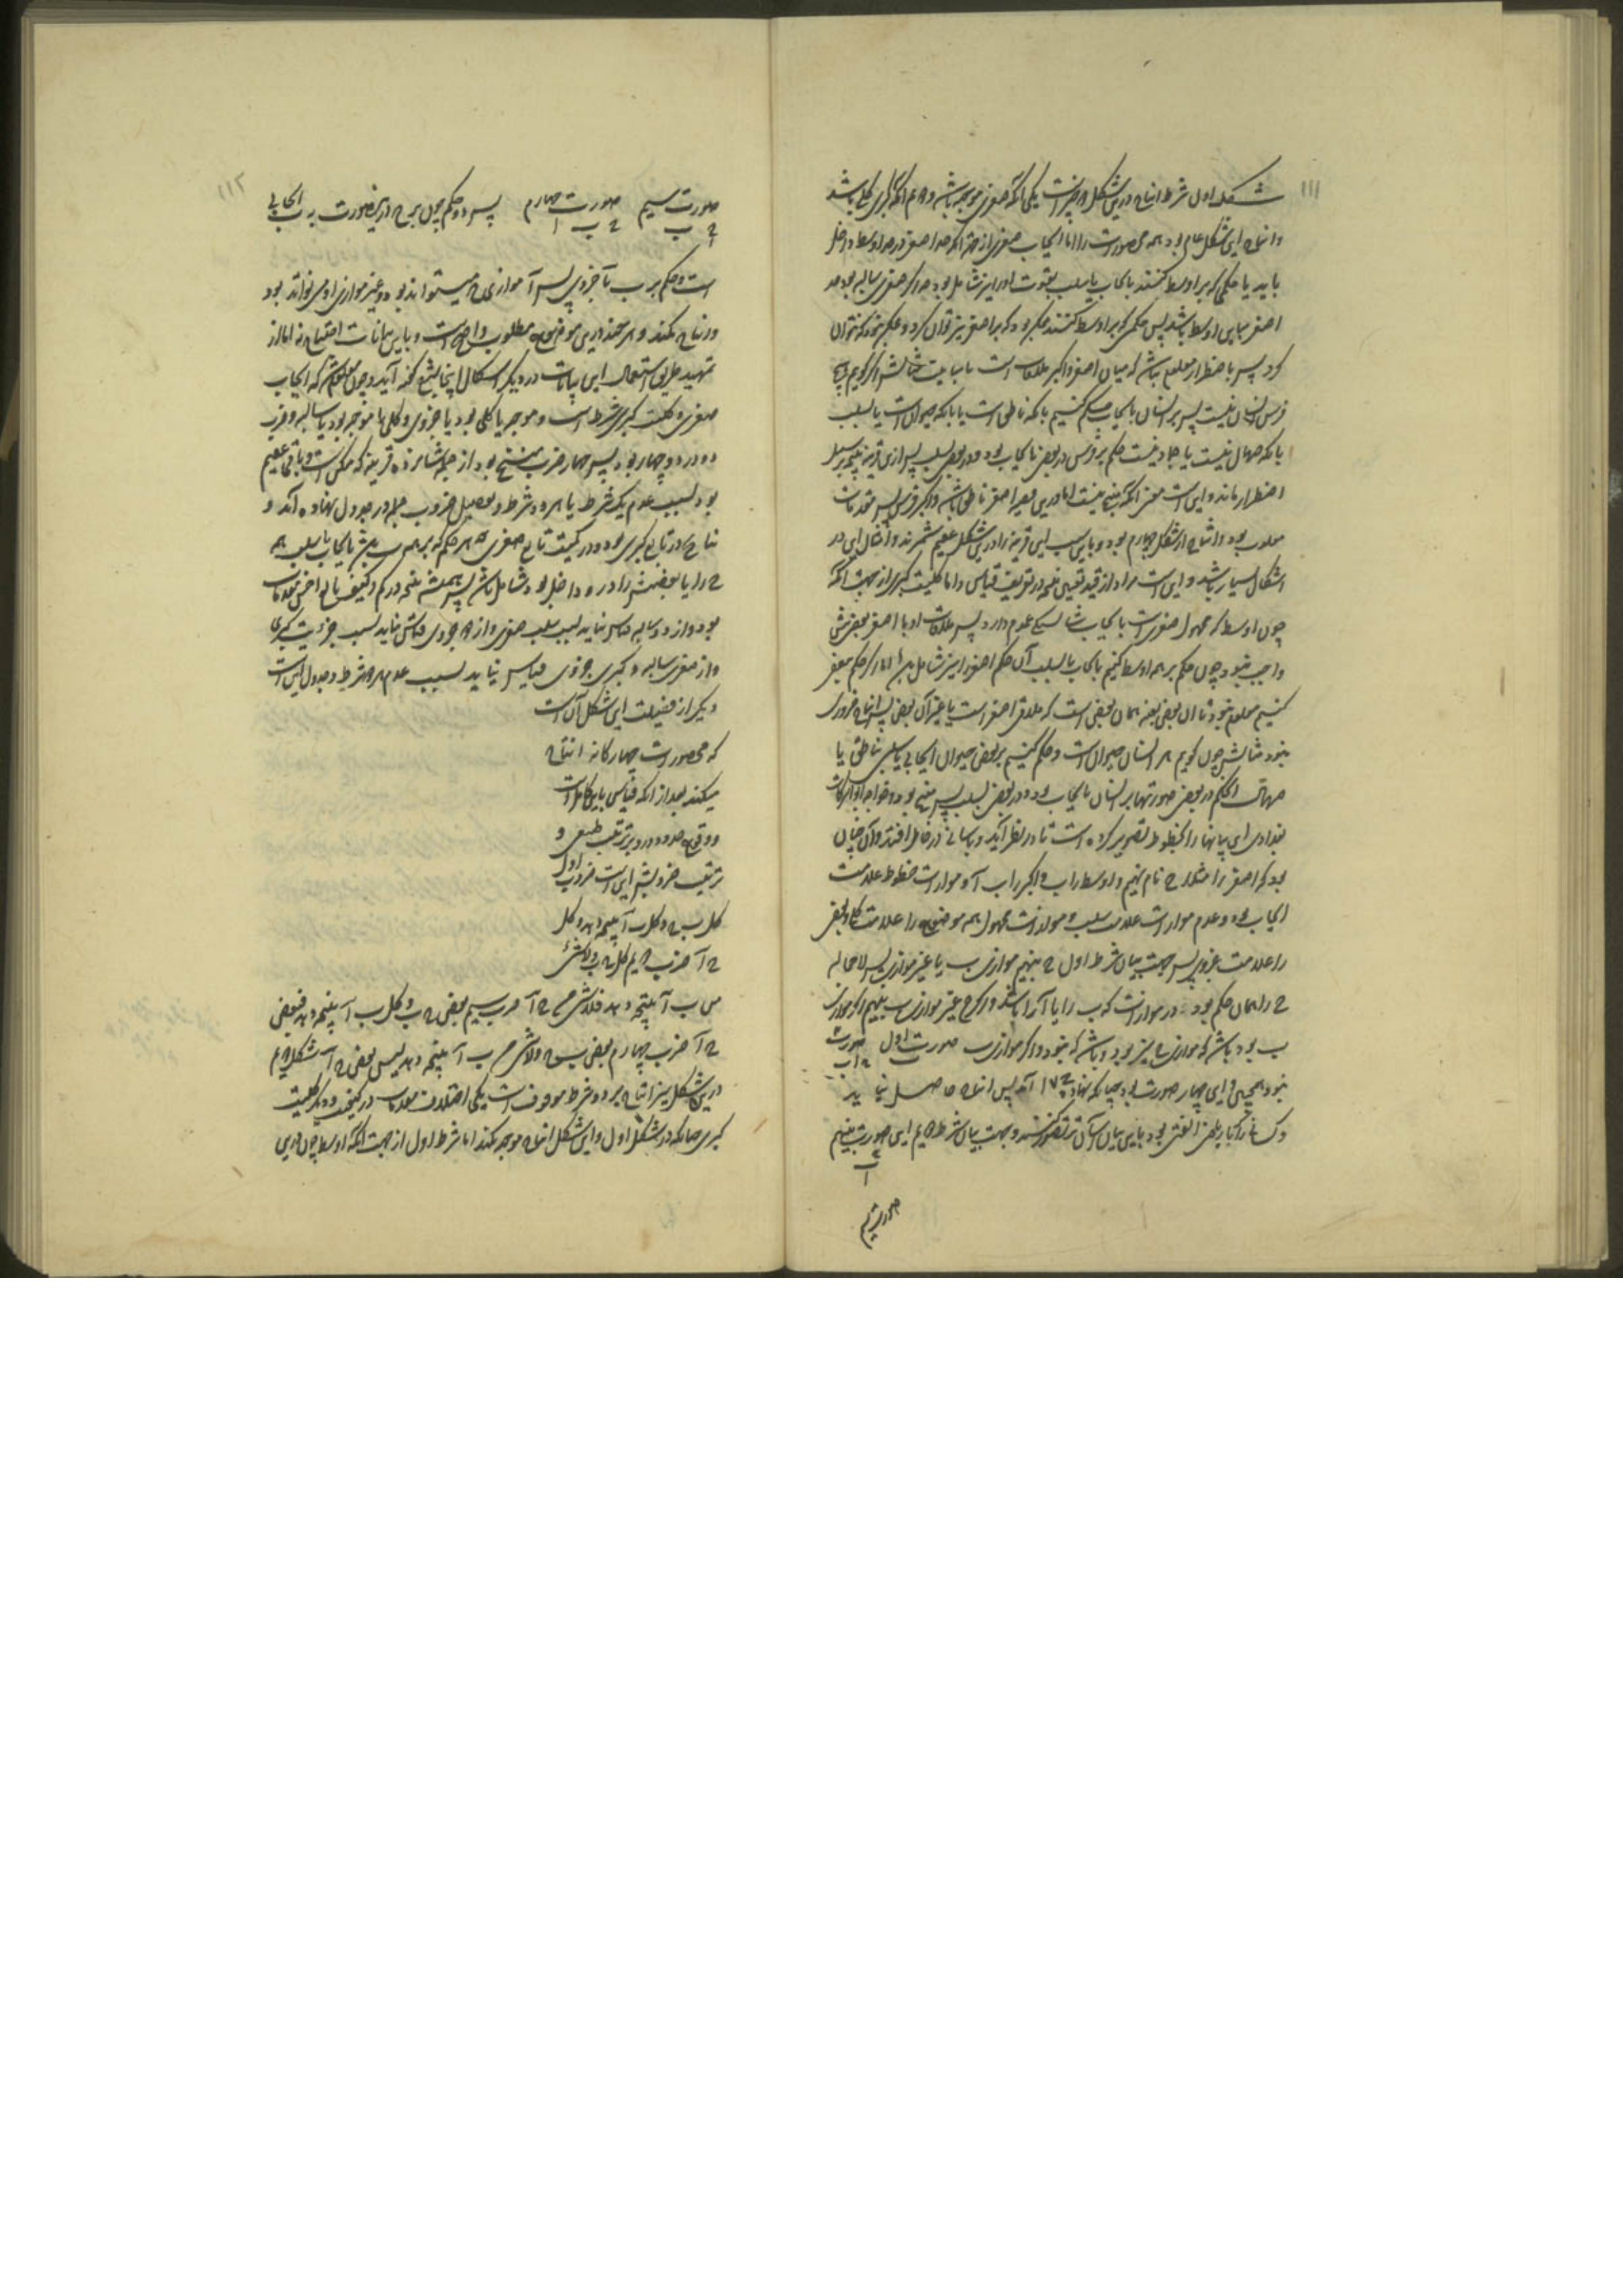 ۱۱۱
شکل اول شرط انتاج درین شکل دو چیز است یکی آنکه صغری موجبه باشد و دوم آنکه کبری کلی باشد
و انتاج این شکل عام بود همه محصورات را اما ایجاب صغری از جهة آنکه حد اصغر در حد اوسط داخل
باید تا حکمی که بر اوسط کنند بایجاب یا سلب بقوت او را نیز شامل بود چه اگر صغری سالبه بود حد
اصغر مباین اوسط باشد پس حکمی که بر اوسط کنند بود که بر اصغر نیز توان کرد و بود که نتوان
کرد پس باضطرار معلوم نباشد که میان اصغر و اکبر ملاقات است یا مباینت مثالش اگر گوییم هیچ
فرس انسان نیست پس بر انسان بایجاب حکم کنیم بآنکه ناطق است یا بآنکه حیوان است یا بسلب
بآنکه صهال نیست یا جماد نیست حکم بر فرس در بعضی بایجاب بود و در بعضی بسلب پس ازین قرینه نتیجه بر سبیل
اضطرار نماند و این است معنی آنکه منتج نیست اما درین اصغر ناطق باشد و اکبر فرس پس مقدمات
مقلوب بود و انتاج از شکل چهارم بود و باین سبب این قرینه را درین شکل عقیم شمرند و امثال این در
اشکال بسیار باشد و این است مراد از قید تعیین نتیجه در تعریف قیاس و اما کلیت کبری از جهت آنکه
چون اوسط که محمول صغری است بایجاب شاید که عموم دارد پس ملاقات او با اصغر ببعضی
واجب نبود و چون حکم بر همه اوسط کنیم بایجاب یا سلب آن حکم اصغر را نیز شامل بود اما اگر حکم ببعض
کنیم معلوم نبود تا آن بعض بعینه همان بعض است که ملاقی اصغر است یا غیر آن بعض پس انتاج ضروری
نبود مثالش چون گوییم هر انسان حیوان است و حکم کنیم بر بعضی حیوان ایجابی یا سلبی بناطق یا
صهال حکم در بعضی صورتها بر انسان بایجاب بود و در بعضی بسلب پس منتج نبود و خواجه ابو البرکات
بغدادی این بیانها را بخطوط تصویر کرده است تا در نظر آید و بآسانی در خاطر افتد و آن چنان
بود که اصغر را مثلا ج نام نهیم و اوسط را ب و اکبر را آ و موازات خطوط علامت
ایجاب بود و عدم موازات علامت سلب و موازات محمول همه موضوع را علامت کلی و بعض
را علامت جزوی پس جهت بیان شرط اول ج بنهیم موازی ب یا غیر موازی پس لا محاله
ج را همان حکم بود در موازات که ب را با آ باشد و اگر ج غیر موازی ب بنهیم اگر آ موازی
ب بود باشد که موازی ج نیز بود و باشد که نبود و اگر موازی ب صورت اول صورت
نبود همچنین و این چهار صورت بود چنانکه نهاده آمد پس انتاج حاصل نیاید
و کسانی را که بریاضی الفتی بود باین بیان آسان تر تصور کنند و جهت بیان شرط دوم این صورت بنهیم
ج
ب
ا
صورت سیم
۱۱۲
صورت سیم صورت چهارم پس دو حکم چون بر ج درین صورت ب ایجابی
است و حکم بر ب بآ جزوی پس آ موازی ج میتواند بود و غیر موازی او می تواند بود
و انتاج نکند و هر چند درین موضوع مطلوب واضح است و باین بیانات احتیاج نه اما از
تمهید طریق استعمال این بیانات در دیگر اشکال اینجا شروع کرده آید و چون معلوم شد که ایجاب
صغری و کلیت کبری شرط است و موجبه یا کلی بود یا جزوی و کلی یا موجبه بود یا سالبه و ضرب
دو در دو چهار بود پس چهار ضرب منتج بود از جمله شانزده قرینه که ممکن است و باقی عقیم
بود بسبب عدم یک شرط یا هر دو شرط و تفصیل ضروب جمله در جدول نهاده آمد و
نتایج در کیفیت تابع کبری بود و در کمیت تابع صغری چه هر حکم که بر همه ب باشد بایجاب یا سلب همه
ج را یا بعضش را در و داخل بود شامل باشد پس همیشه نتیجه در کم و کیف تابع اخس مقدمات
بود و از دو سالبه قیاس نیاید بسبب سلب صغری و از دو جزوی قیاس نیاید بسبب جزویت کبری
و از صغری سالبه و کبری جزوی قیاس نیاید بسبب عدم هر دو شرط و جدول این است
دیگر از فضیلت این شکل آن است
که محصورات چهارگانه انتاج
میکند بعد از آنکه قیاسی باین کامل است
و وقوع حدود درو بر ترتیب طبیعی و
ترتیب ضروبش این است ضرب اول
کل ج ب و کل ب آ نتیجه دهد و کل
ج آ ضرب دوم کل ج ب و لا شئ
من ب آ نتیجه دهد فلا شئ من ج آ ضرب سیم بعض ج ب و کل ب آ نتیجه دهد فبعض
ج آ ضرب چهارم بعض ج ب و لا شئ من ب آ نتیجه دهد لیس بعض ج آ شکل دوم
درین شکل نیز انتاج بر دو شرط موقوف است یکی اختلاف مقدمات در کیفیت و دیگر کلیت
کبری چنانکه در شکل اول و این شکل انتاج موجبه نکند اما شرط اول از جهت آنکه اوسط چون درین